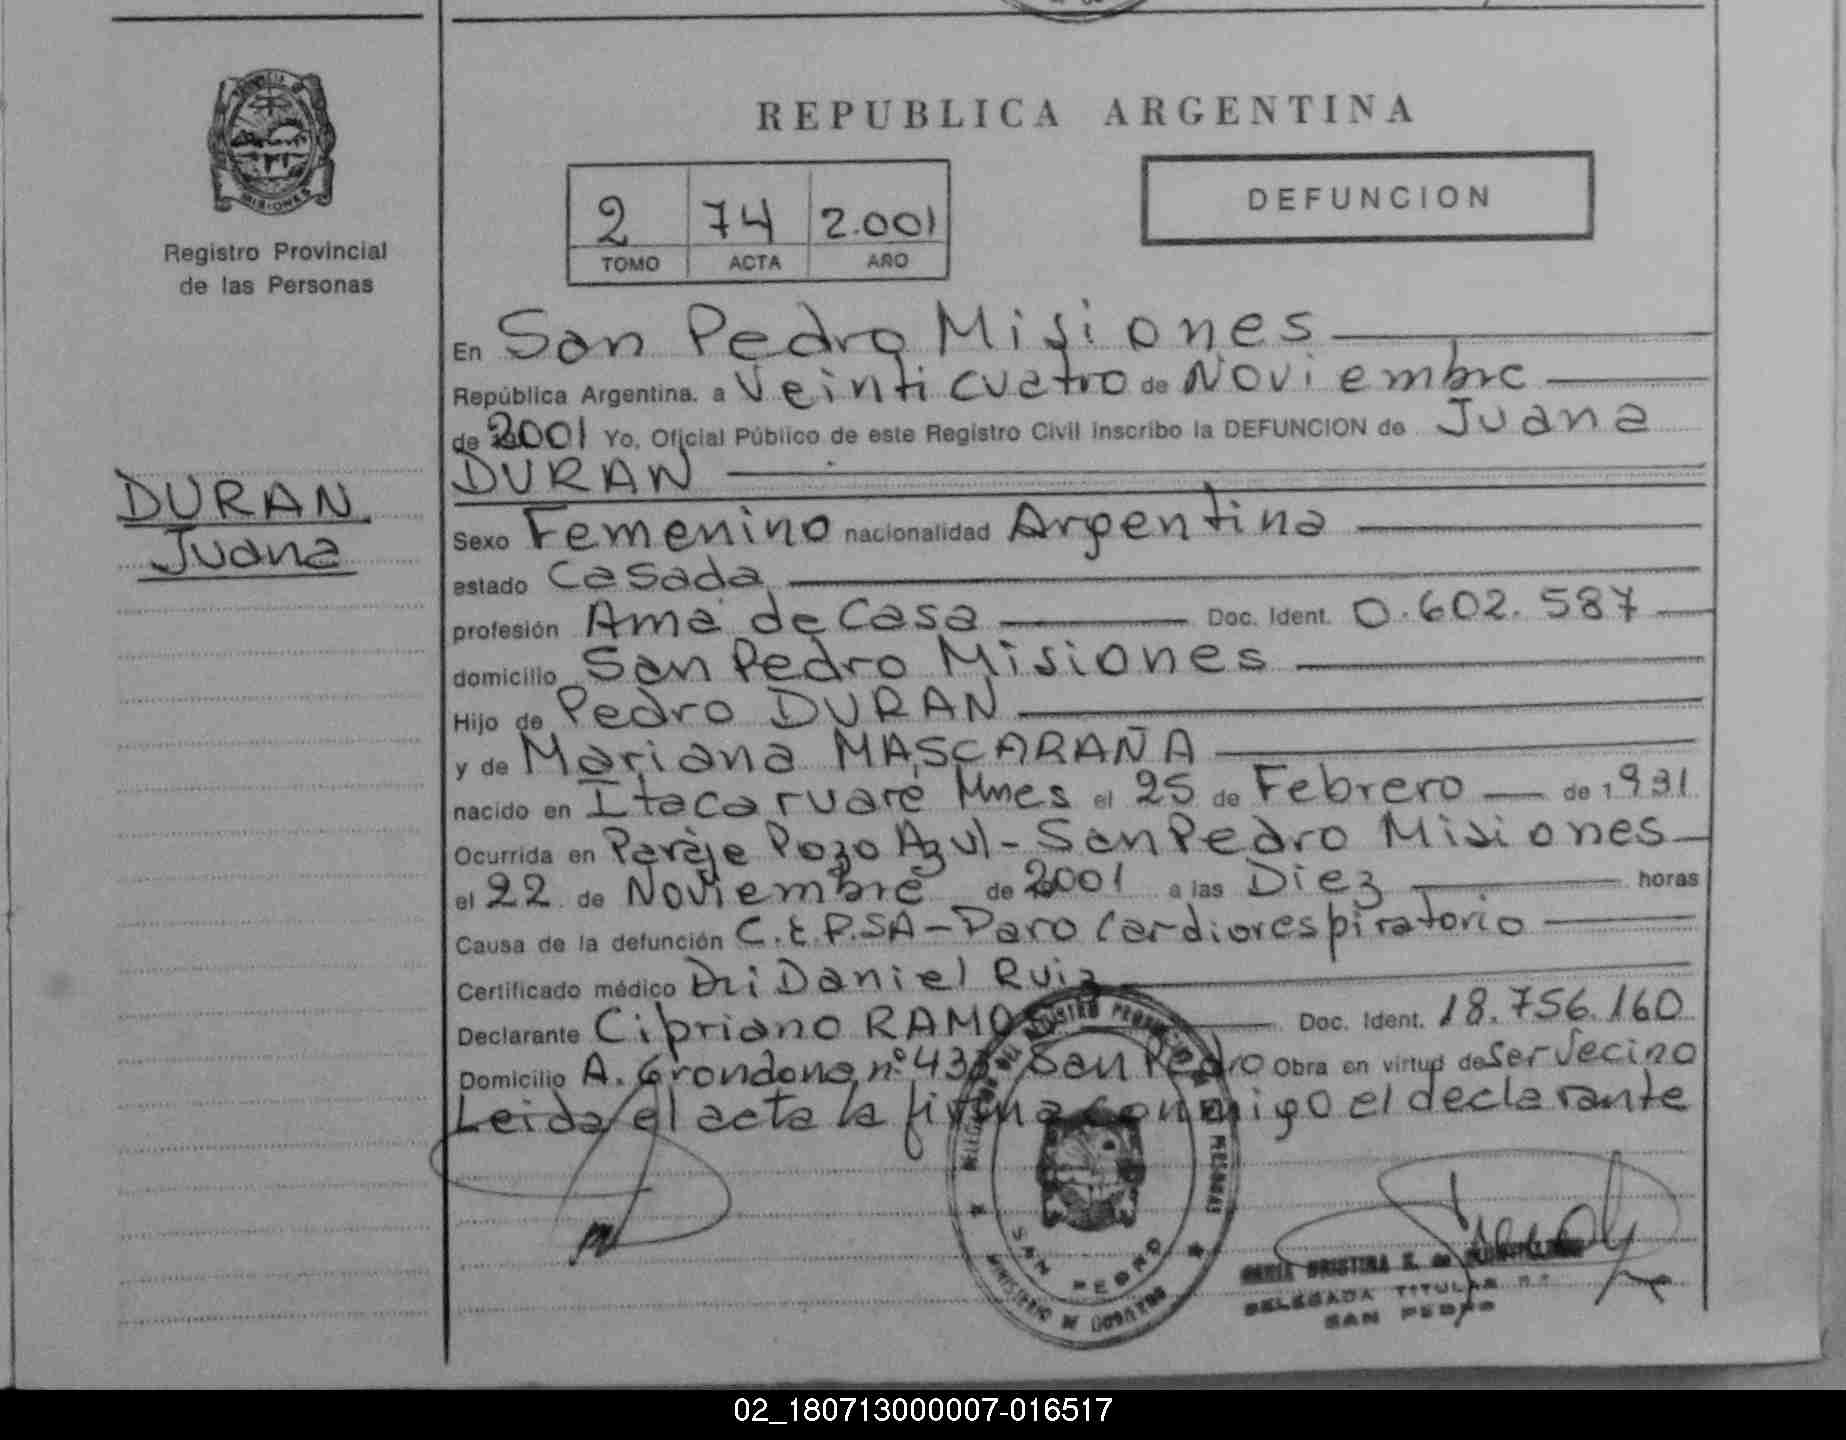 REPUBLICA ARGENTINA
2 74 2.001
TOMO ACTA AÑO
DEFUNCION
MISIONES
Registro Provincial
de las Personas
DURAN
Juana
En San Pedro Misiones
República Argentina, a Veinticuatro de Noviembre
de 2001 Yo, Oficial Público de este Registro Civil inscribo la DEFUNCION de Juana
DURAN
Sexo Femenino nacionalidad Argentina
estado Casada
profesión Ama de Casa Doc. Ident. 0.602.587
domicilio San Pedro Misiones
Hijo de Pedro DURAN
y de Mariana MASCARAÑA
nacido en Itacaruaré Mnes el 25 de Febrero de 1931
Ocurrida en Paraje Pozo Azul - San Pedro Misiones
el 22 de Noviembre de 2001 a las Diez horas
Causa de la defunción C.E.P.SA - Paro Cardiorespiratorio
Certificado médico Daniel Ruiz
Declarante Cipriano RAMOS Doc. Ident. 18.756.160
Domicilio A. Grondona nº 433 San Pedro Obra en virtud de Ser Vecino
Leida el acta la firma conmigo el declarante
SAN PEDRO
MINISTERIO DE GOBIERNO
MARIA CRISTINA
DELEGADA TITULAR
SAN PEDRO
02_180713000007-016517